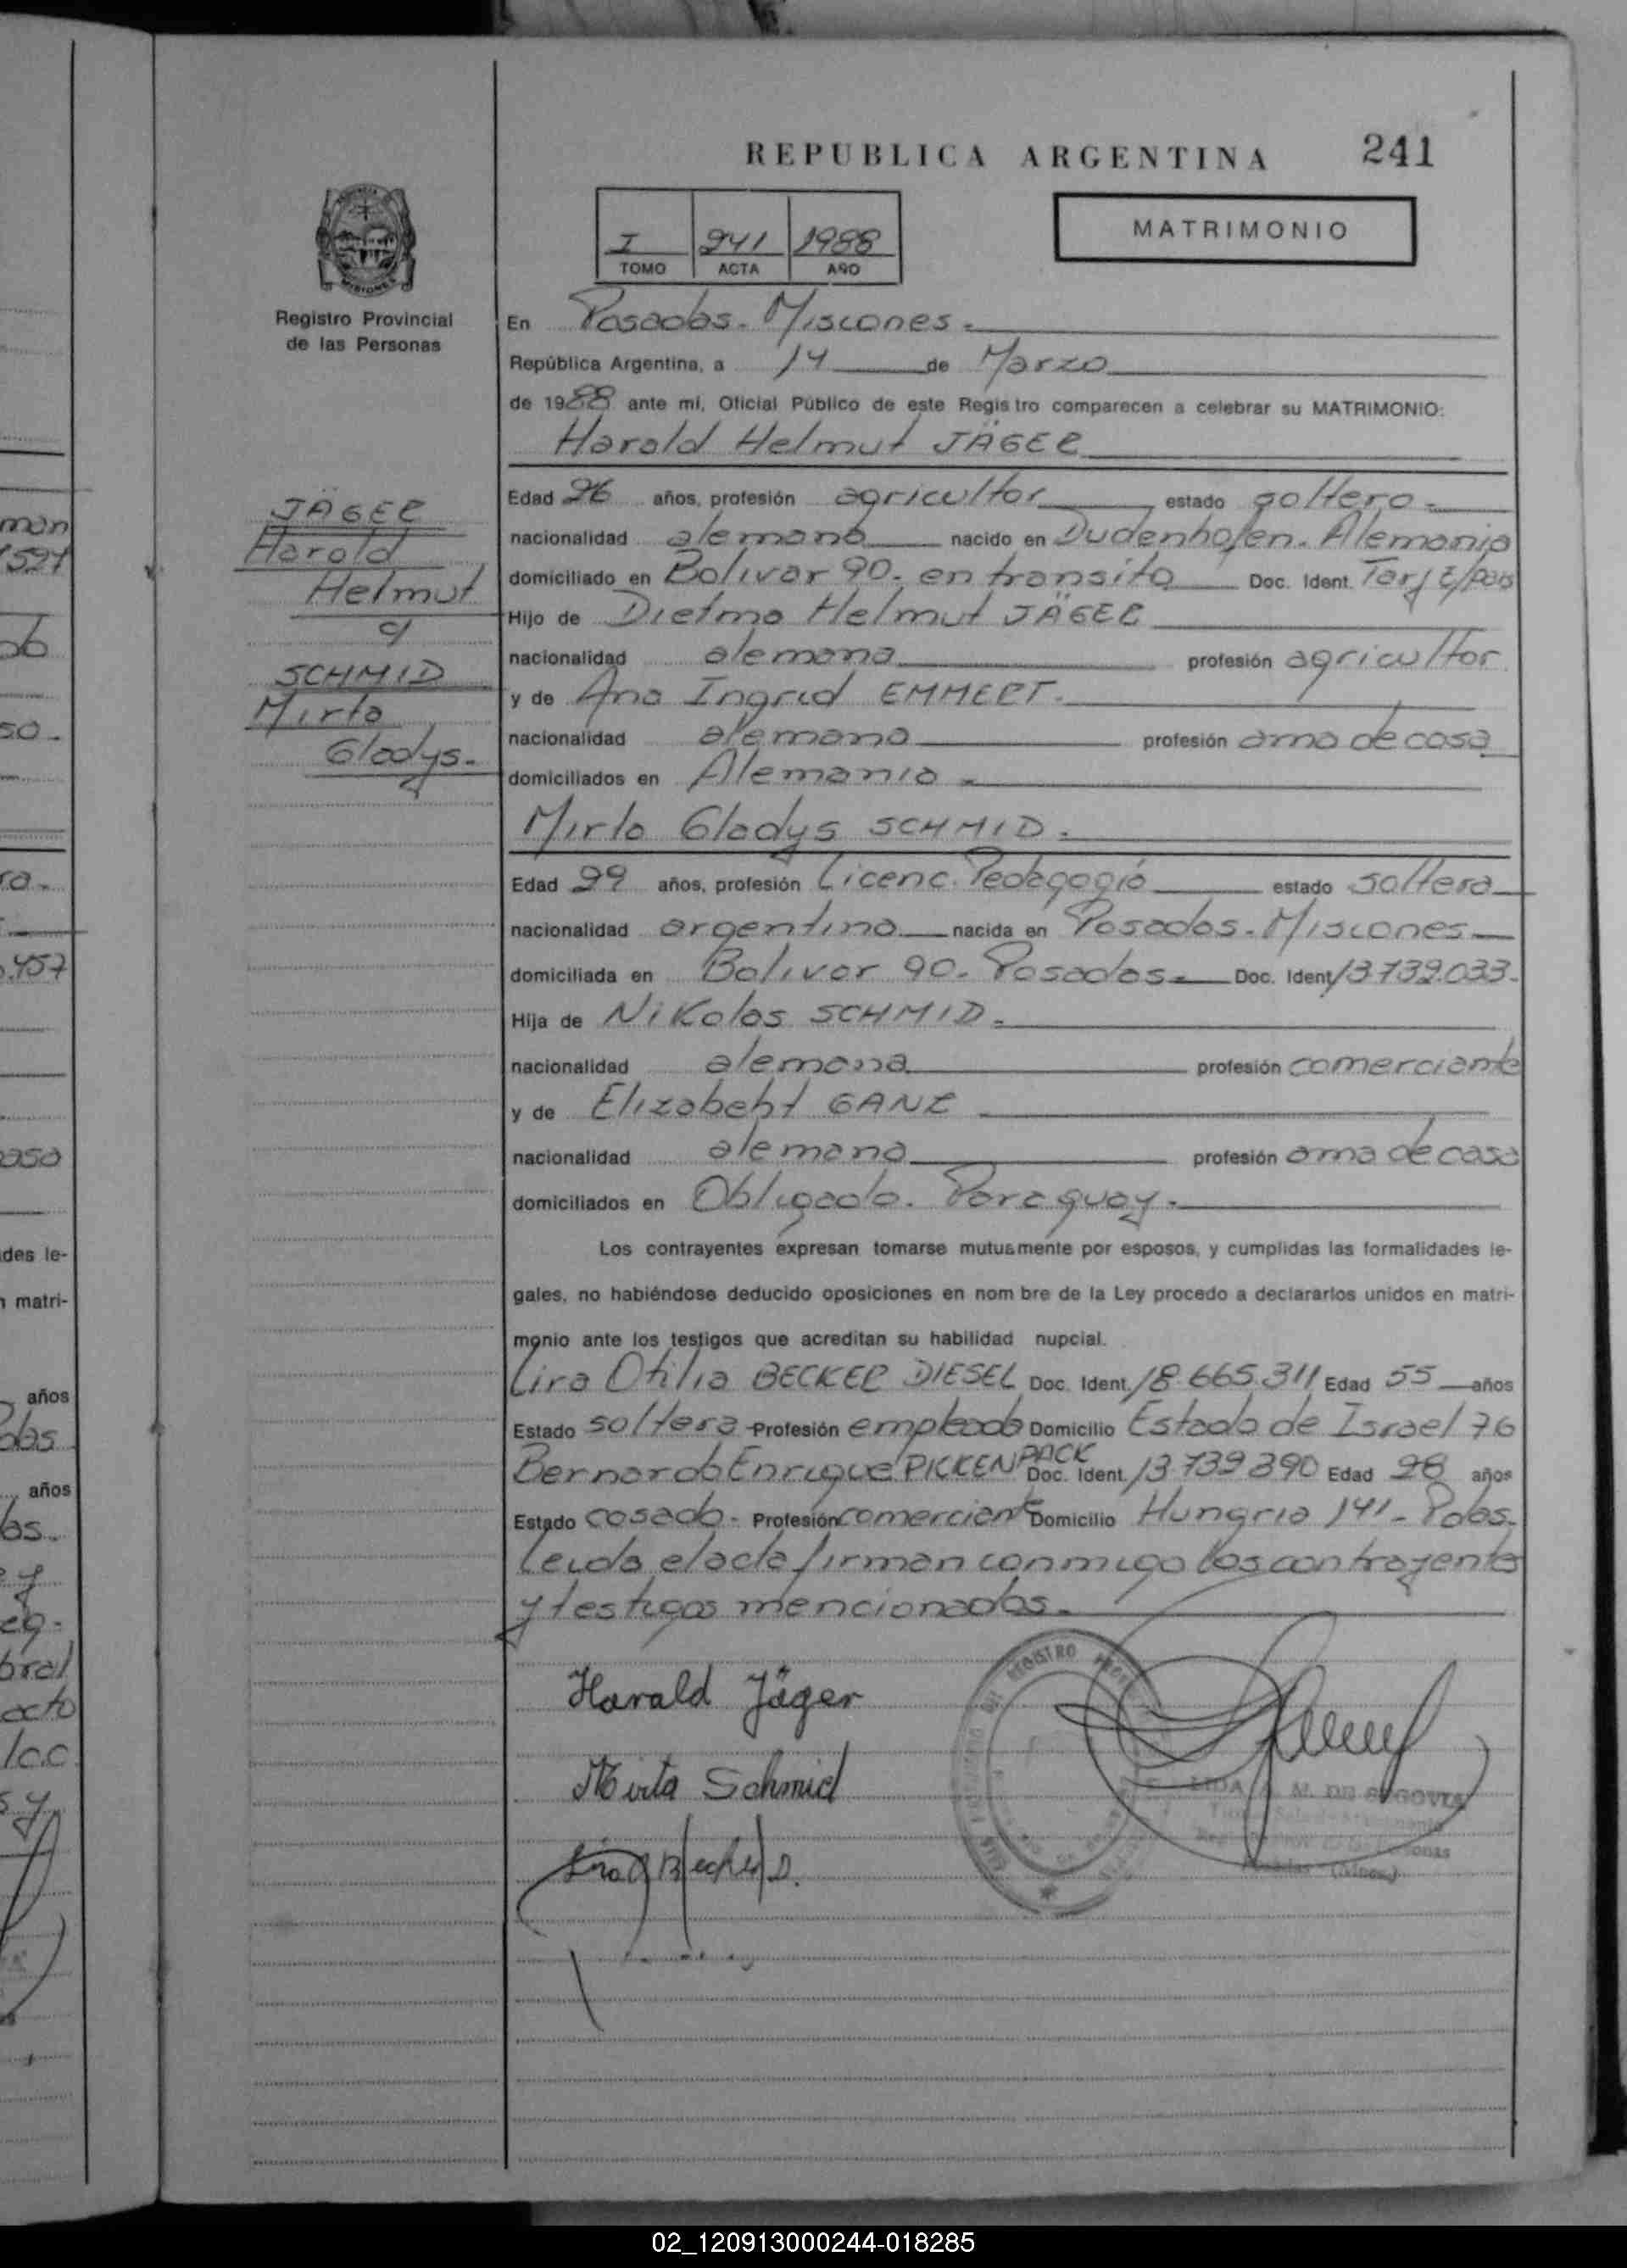 REPUBLICA ARGENTINA 241
MATRIMONIO
I 241 1988
TOMO ACTA AÑO
Registro Provincial
de las Personas
En Posadas - Misiones -
República Argentina, a 14 de Marzo
de 1988 ante mí, Oficial Público de este Registro comparecen a celebrar su MATRIMONIO:
Harald Helmut JÄGER
JÄGER
Harald
Helmut
y
SCHMID
Mirta
Gladys.-
Edad 26 años, profesión agricultor estado soltero -
nacionalidad alemana nacido en Dudenhofen. Alemania
domiciliado en Bolivar 90. en transito Doc. Ident.
Hijo de Dietmo Helmut JÄGER
nacionalidad alemana profesión agricultor
y de Ana Ingrid EMMERT.
nacionalidad alemana profesión ama de casa
domiciliados en Alemania -
Mirta Gladys SCHMID.
Edad 29 años, profesión Licenc. Pedagogia estado soltera
nacionalidad argentina nacida en Posadas - Misiones
domiciliada en Bolivar 90. Posadas - Doc. Ident 13.739.033.
Hija de Nikolas SCHMID -
nacionalidad alemana profesión comerciante
y de Elizabeht GANZ
nacionalidad alemana profesión ama de casa
domiciliados en Obligado. Paraguay -
Los contrayentes expresan tomarse mutuamente por esposos, y cumplidas las formalidades le-
gales, no habiéndose deducido oposiciones en nom bre de la Ley procedo a declararlos unidos en matri-
monio ante los testigos que acreditan su habilidad nupcial.
Lira Otilia BECKER DIESEL Doc. Ident. 18.665.311 Edad 55 años
Estado soltera Profesión empleada Domicilio Estado de Israel 76
Bernardo Enrique PICKENPACK Doc. Ident. 13 739 390 Edad 28 años
Estado casado - Profesión comerciante Domicilio Hungria 141 - Pdas.
Leida el acta firman conmigo los contrayentes
y testigos mencionados.-
Harald Jäger
Mirta Schmid
DE SEGOVIA
02_120913000244-018285